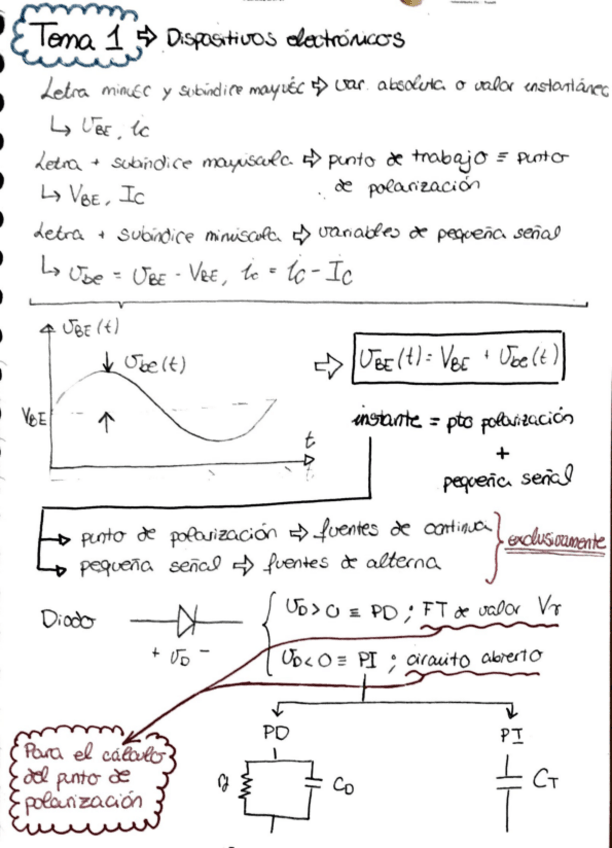 Tema 1 ⇨ Dispositivos electrónicos
Letra minúsc y subíndice mayúsc ⇨ var. absoluta o valor instantáneo
↳ υBE, ic
Letra + subíndice mayúscula ⇨ punto de trabajo ≡ punto
↳ VBE, IC de polarización
Letra + subíndice minúscula ⇨ variables de pequeña señal
↳ υbe = υBE - VBE, ic = iC - IC
υBE (t)
υbe (t)
VBE
t
⇨ υBE (t) = VBE + υbe (t)
instante = pto polarización
+
pequeña señal
punto de polarización ⇨ fuentes de continua
pequeña señal ⇨ fuentes de alterna
exclusivamente
Diodo
+ υD -
υD > 0 ≡ PD ; FT de valor Vγ
υD < 0 ≡ PI ; circuito abierto
Para el cálculo
del punto de
polarización
PD
CD
PI
CT